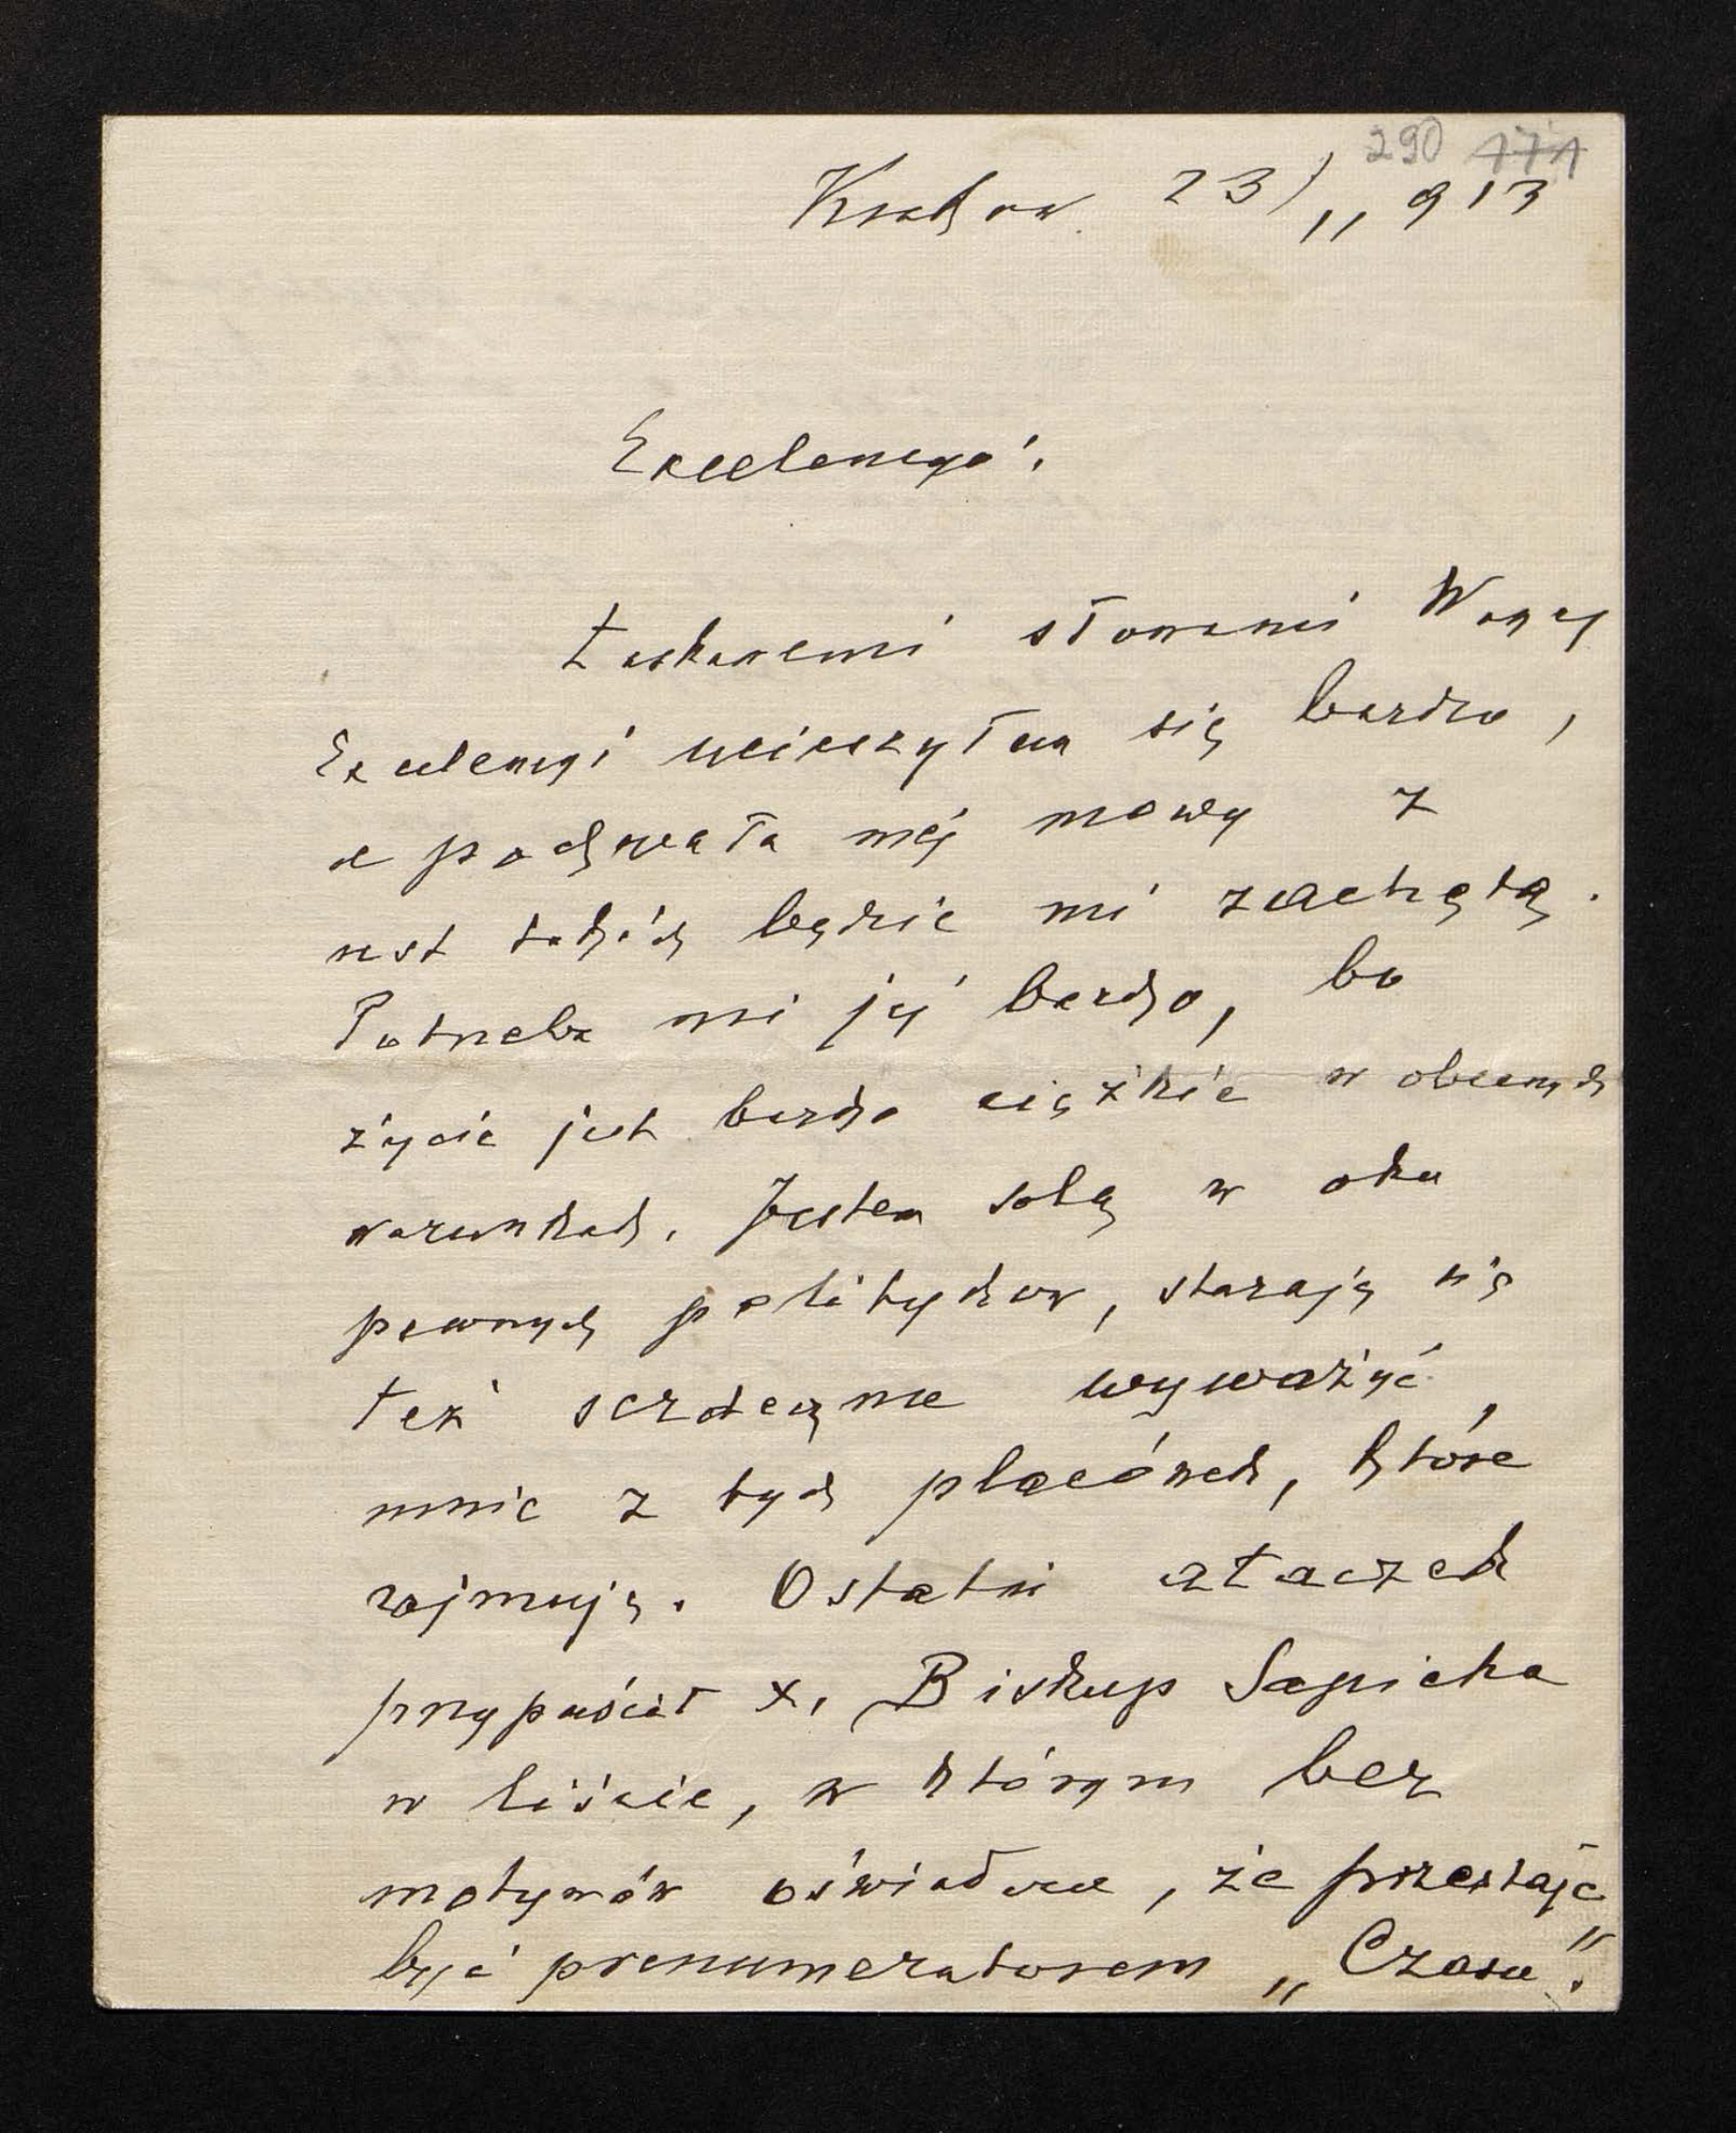 290 171
Kraków 23/11 913
Excelencyo!
Łaskawemi słowami Waszej
Excelencyi ucieszyłem się bardzo,
a pochwała mej mowy z
ust takich będzie mi zachętą.
Potrzeba mi jej bardzo, bo
życie jest bardzo ciężkie w obecnych
warunkach. Jestem solą w oku
pewnych polityków, starają się
też serdecznie wyważyć
mnie z tych placówek, które
zajmuję. Ostatni ataczek
przypuścił X. Biskup Sapieha
w liście, w którym bez
motywów oświadcza, że przestaje
być prenumeratorem „Czasu".